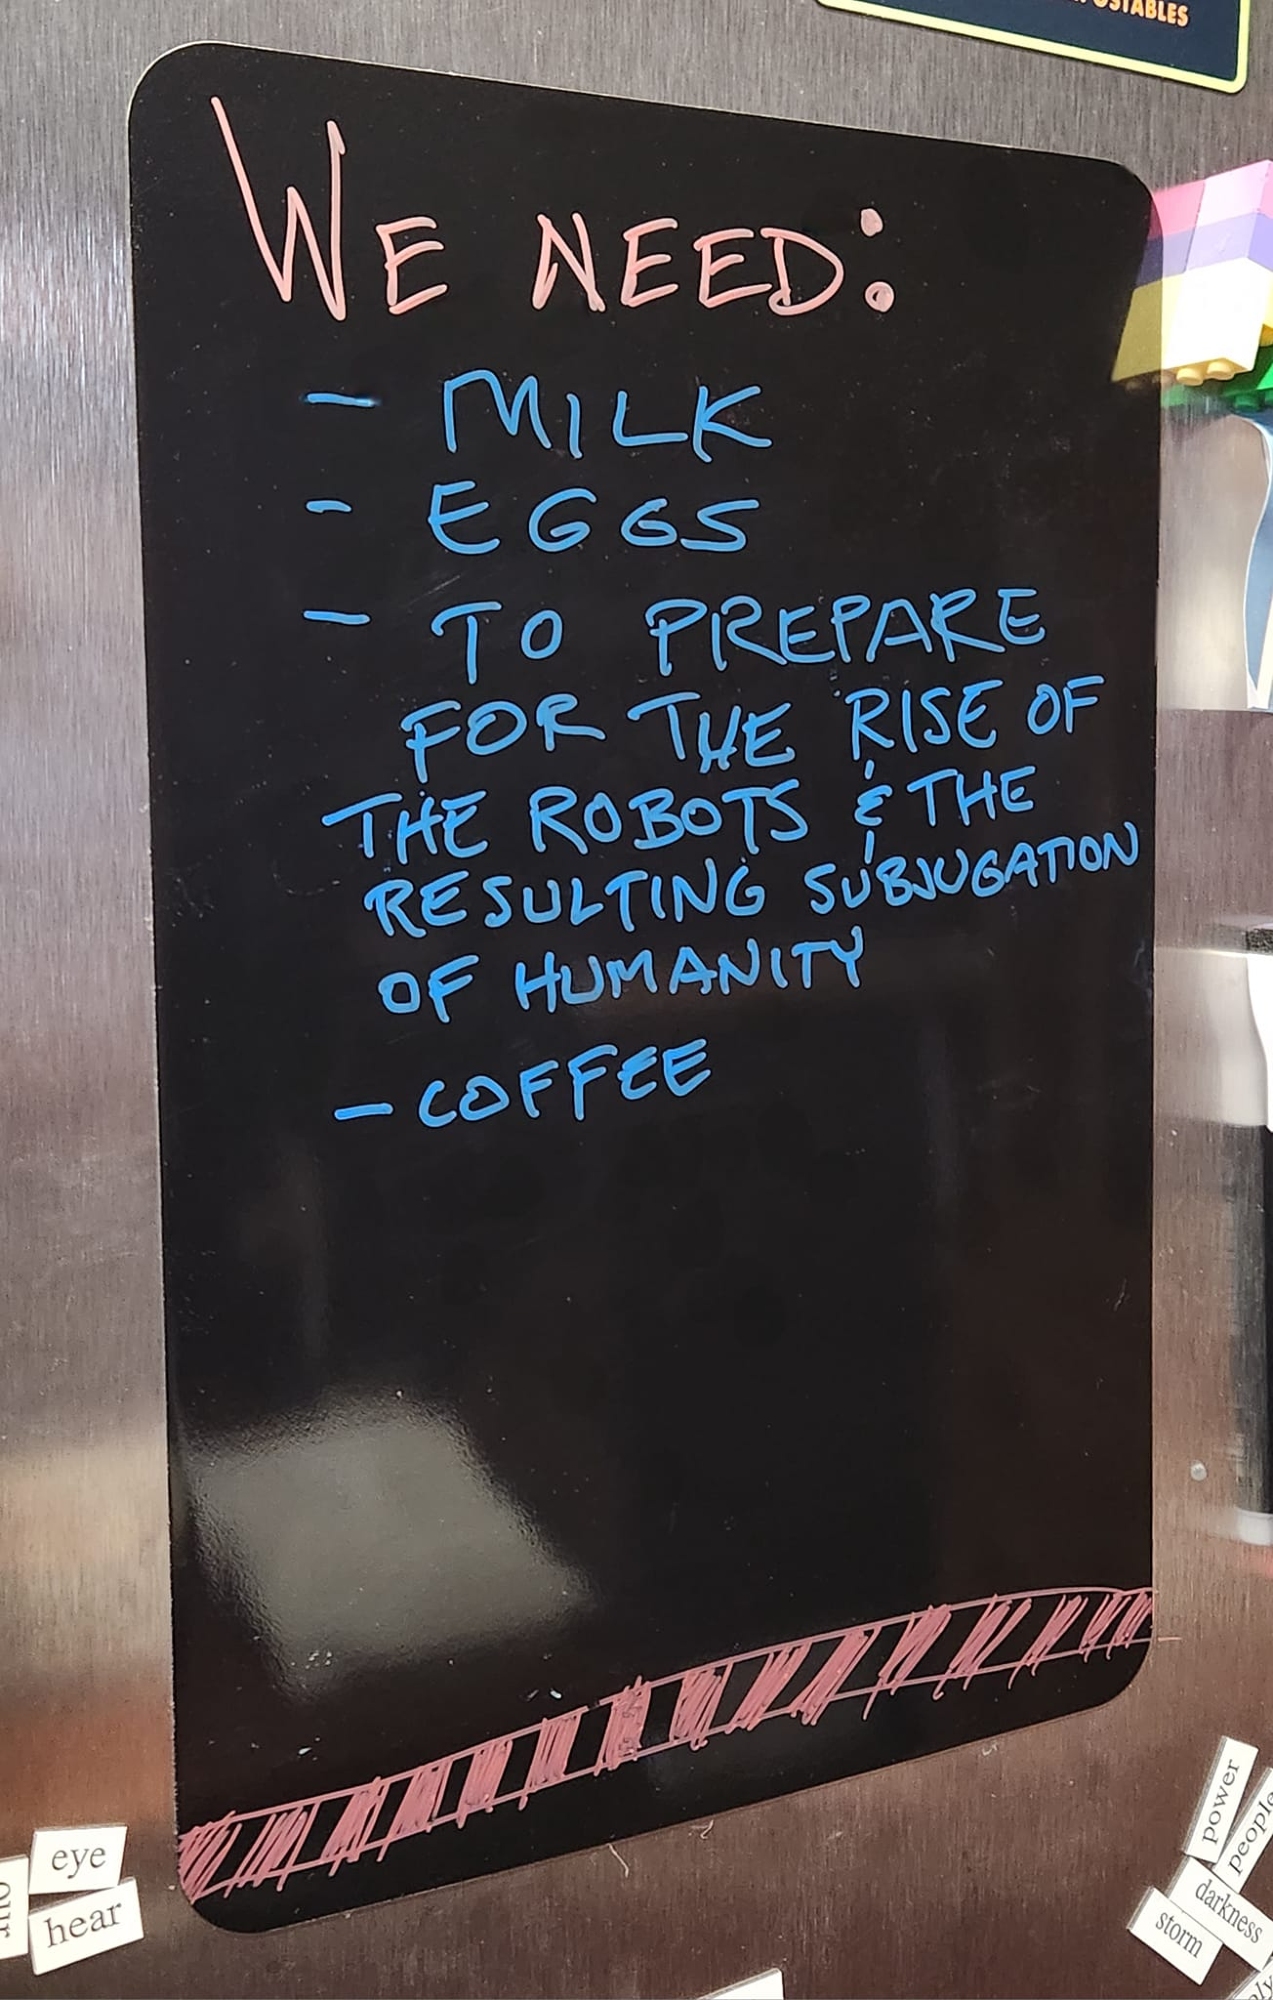 WE NEED:
- MILK
- EGGS
- TO PREPARE
FOR THE RISE OF
THE ROBOTS & THE
RESULTING SUBJUGATION
OF HUMANITY
- COFFEE
eye
hear
power
people
darkness
storm